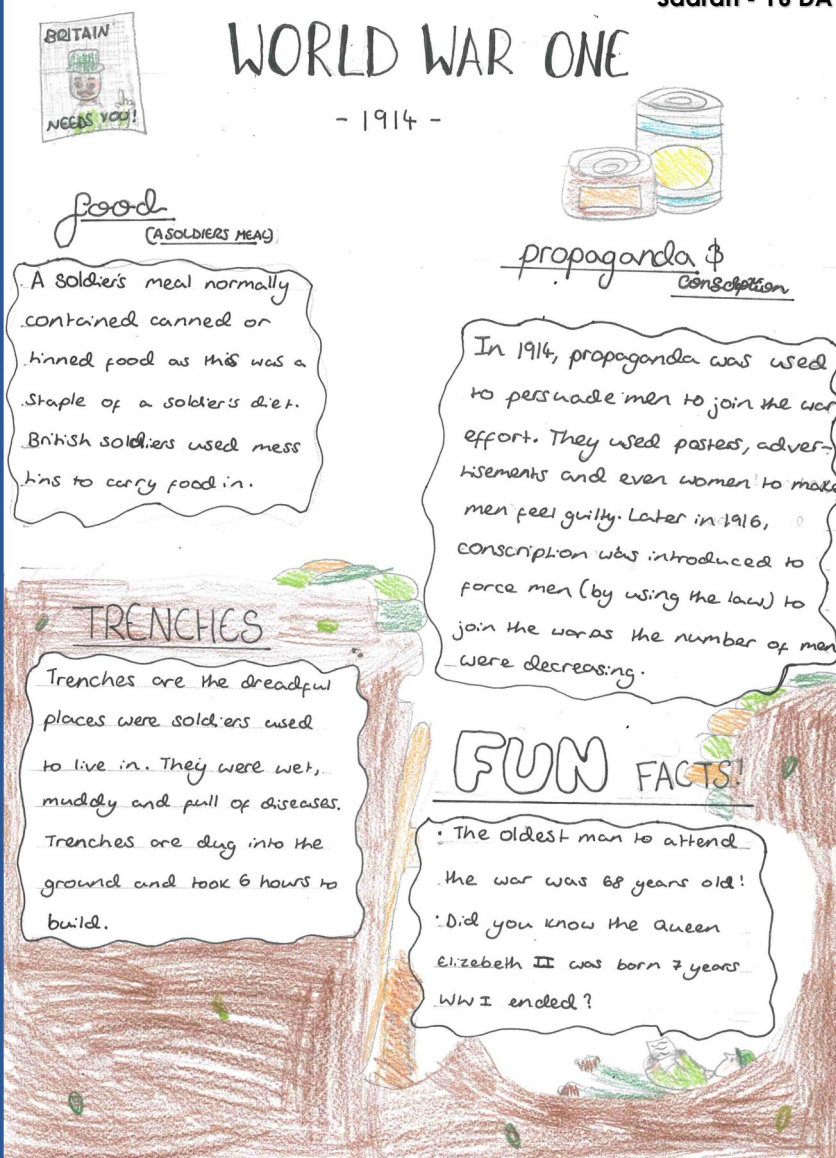 BRITAIN
NEEDS YOU!
WORLD WAR ONE
- 1914 -
food
(A SOLDIERS MEAL)
A soldier's meal normally
contained canned or
tinned food as this was a
staple of a soldier's diet.
British soldiers used mess
tins to carry food in.
propaganda &
conscription
In 1914, propaganda was used
to persuade men to join the war
effort. They used posters, adver-
tisements and even women to make
men feel guilty. Later in 1916,
conscription was introduced to
force men (by using the law) to
join the war as the number of men
were decreasing.
TRENCHES
Trenches are the dreadful
places were soldiers used
to live in. They were wet,
muddy and full of diseases.
Trenches are dug into the
ground and took 6 hours to
build.
FUN FACTS!
· The oldest man to attend
the war was 68 years old!
· Did you know the Queen
Elizebeth II was born 7 years
WWI ended?